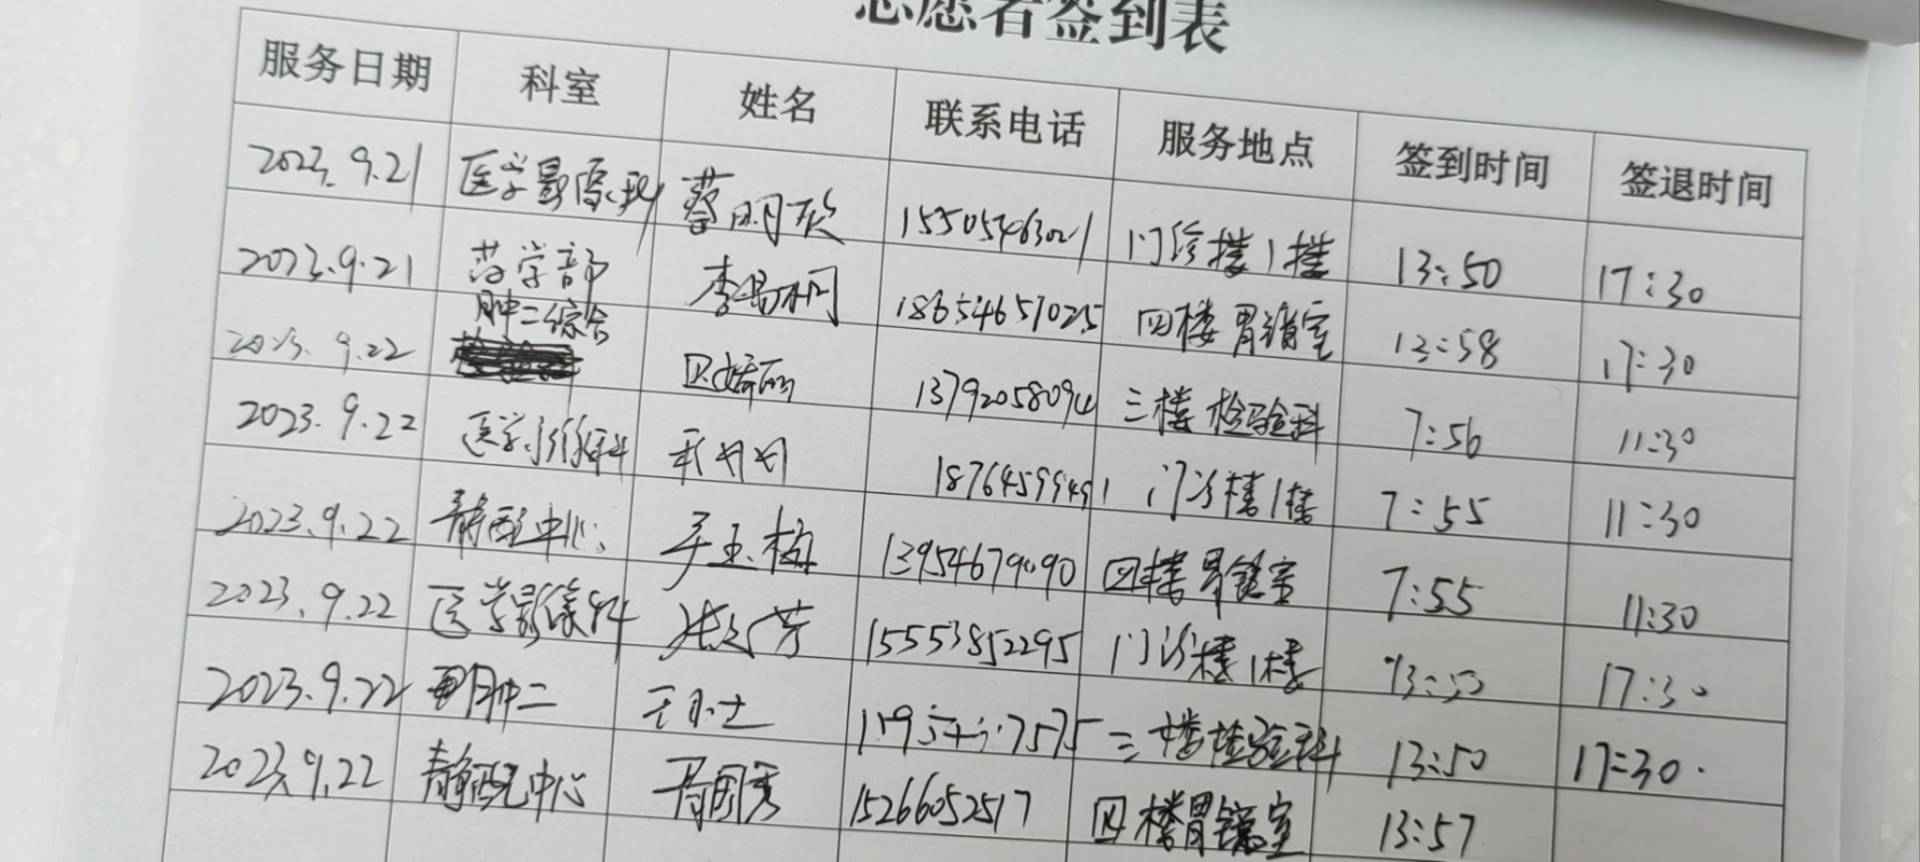 志愿者签到表
服务日期 科室 姓名 联系电话 服务地点 签到时间 签退时间
2023.9.21 医学影像科 蔡明欣 15505463021 门诊楼1楼 13:50 17:30
2023.9.21 药学部 18654651025 四楼胃镜室 13:58 17:30
2023.9.22 肿二综合 13792058094 三楼检验科 7:56 11:30
2023.9.22 医学影像科 18764599491 门诊楼1楼 7:55 11:30
2023.9.22 静配中心 玉梅 13954679090 四楼胃镜室 7:55 11:30
2023.9.22 医学影像科 芳 15553852295 门诊楼1楼 13:50 17:30
2023.9.22 肿二 三楼检验科 13:50 17:30
2023.9.22 静配中心 15266052517 四楼胃镜室 13:57